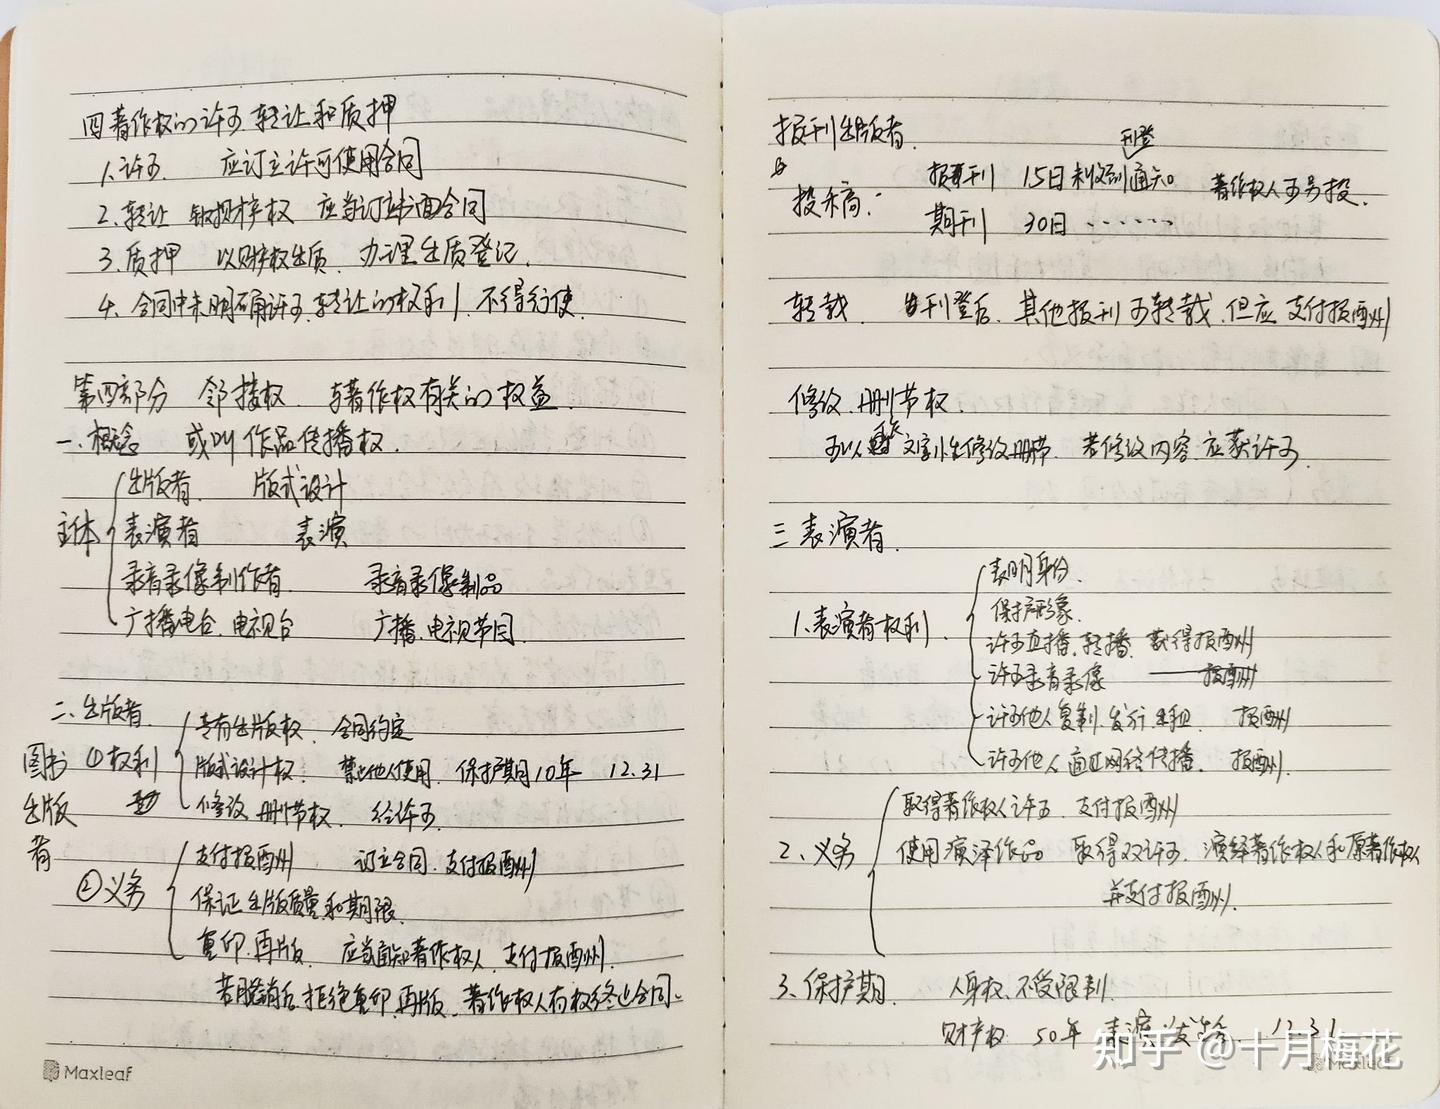 四 著作权的许可、转让和质押
1.许可 应订立许可使用合同
2.转让 财产权 应当订书面合同
3.质押 以财产权出质、办理出质登记.
4.合同中未明确许可、转让的权利,不得行使.
第四部分 邻接权 与著作权有关的权益.
一.概念 或叫作品传播权.
主体
出版者. 版式设计
表演者 表演
录音录像制作者 录音录像制品
广播电台、电视台 广播、电视节目.
二、出版者.
图书出版者
①权利
专有出版权、合同约定
版式设计权. 禁止他人使用. 保护期10年 12.31
修改、删节权、经许可.
②义务
支付报酬 订立合同.支付报酬
保证出版质量和期限.
重印、再版、应当通知著作权人,支付报酬.
若脱销后拒绝重印、再版、著作权人有权终止合同.
Maxleaf
报刊出版者.
投稿:
报刊 15日未收到刊登通知
期刊 30日 ........
著作权人可另投.
转载. 刊登后、其他报刊可转载.但应支付报酬
修改、删节权.
可以文字性修改、删节 若修改内容.应获许可.
三 表演者.
1.表演者权利.
表明身份.
保护形象.
许可直播、转播、获得报酬
许可录音录像 报酬
许可他人复制、发行、出租 报酬
许可他人通过网络传播. 报酬.
2、义务
取得著作权人许可、支付报酬
使用演泽作品 取得双许可、演绎著作权人和原著作权人
并支付报酬.
3.保护期. 人身权、不受限制.
财产权 50年 表演发生后. 12.31
知乎 @十月梅花
Maxleaf